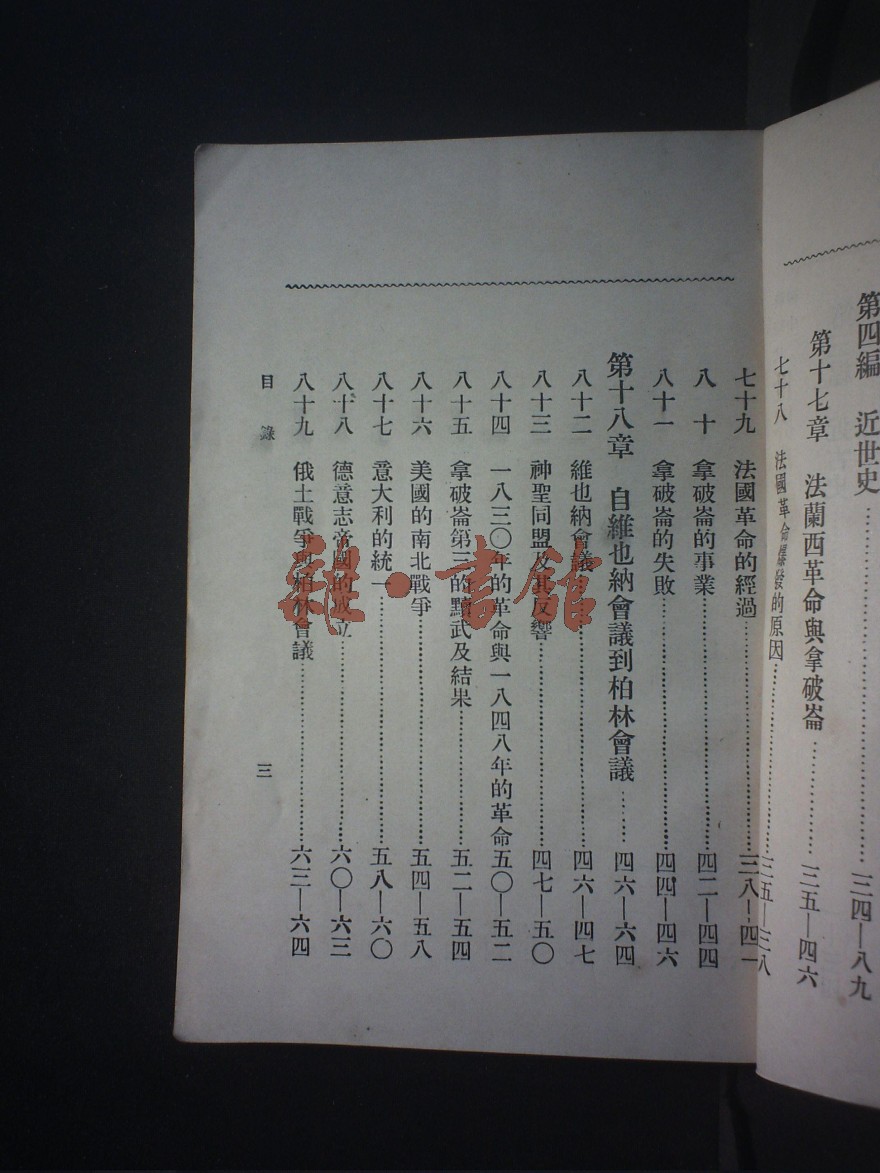 第四編　近世史……三四—八九
第十七章　法蘭西革命與拿破崙……三五—四六
七十八　法國革命爆發的原因……三五—三八
七十九　法國革命的經過……三八—四一
八　十　拿破崙的事業……四二—四四
八十一　拿破崙的失敗……四四—四六
第十八章　自維也納會議到柏林會議……四六—六四
八十二　維也納會議……四六—四七
八十三　神聖同盟及其反響……四七—五〇
八十四　一八三〇年的革命與一八四八年的革命五〇—五二
八十五　拿破崙第三的黷武及結果……五二—五四
八十六　美國的南北戰爭……五四—五八
八十七　意大利的統一……五八—六〇
八十八　德意志帝國的成立……六〇—六三
八十九　俄土戰爭和柏林會議……六三—六四
目錄　三
雅·書館